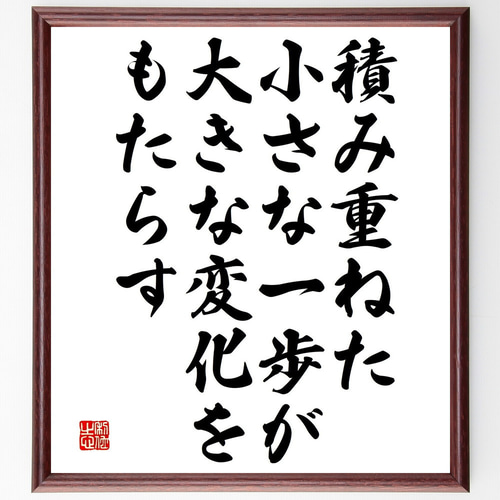 積み重ねた
小さな一歩が
大きな変化を
もたらす